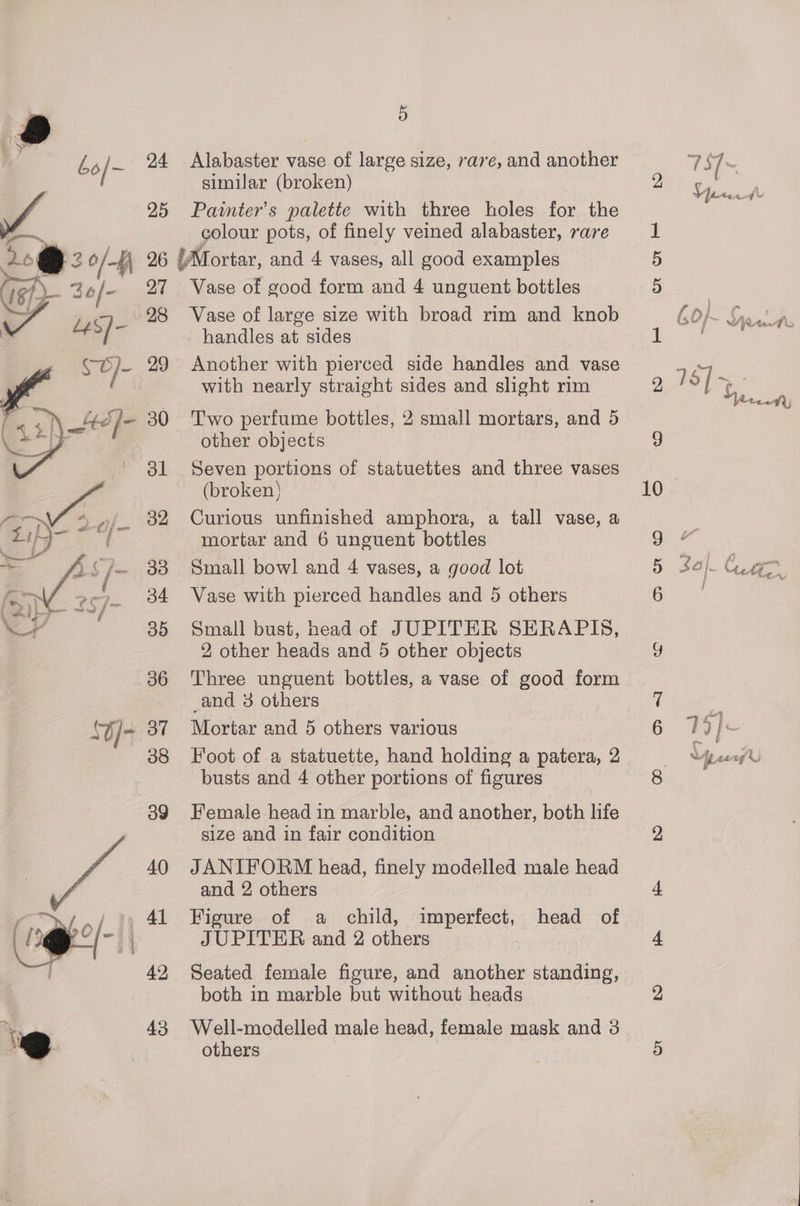 5
60/- 24 Alabaster vase of large size, rare, and another
similar (broken) 2 75/-
25 Painter's palette with three holes for the
colour pots, of finely veined alabaster, rare 1
30/- 26 Mortar, and 4 vases, all good examples 5
30/- 27 Vase of good form and 4 unguent bottles 5
45/- 28 Vase of large size with broad rim and knob
handles at sides 1 60/-
50/- 29 Another with pierced side handles and vase
with nearly straight sides and slight rim 2 75/-
30 Two perfume bottles, 2 small mortars, and 5
other objects 9
31 Seven portions of statuettes and three vases
(broken) 10
20/- 32 Curious unfinished amphora, a tall vase, a
mortar and 6 unguent bottles 9
33 Small bowl and 4 vases, a good lot 5 30/-
25/- 34 Vase with pierced handles and 5 others 6
35 Small bust, head of JUPITER SERAPIS,
2 other heads and 5 other objects 9
36 Three unguent bottles, a vase of good form
and 3 others 7
37 Mortar and 5 others various 6 75/-
38 Foot of a statuette, hand holding a patera, 2
busts and 4 other portions of figures 8
39 Female head in marble, and another, both life
size and in fair condition 2
40 JANIFORM head, finely modelled male head
and 2 others 4
41 Figure of a child, imperfect, head of
JUPITER and 2 others 4
42 Seated female figure, and another standing,
both in marble but without heads 2
43 Well-modelled male head, female mask and 3
others 5